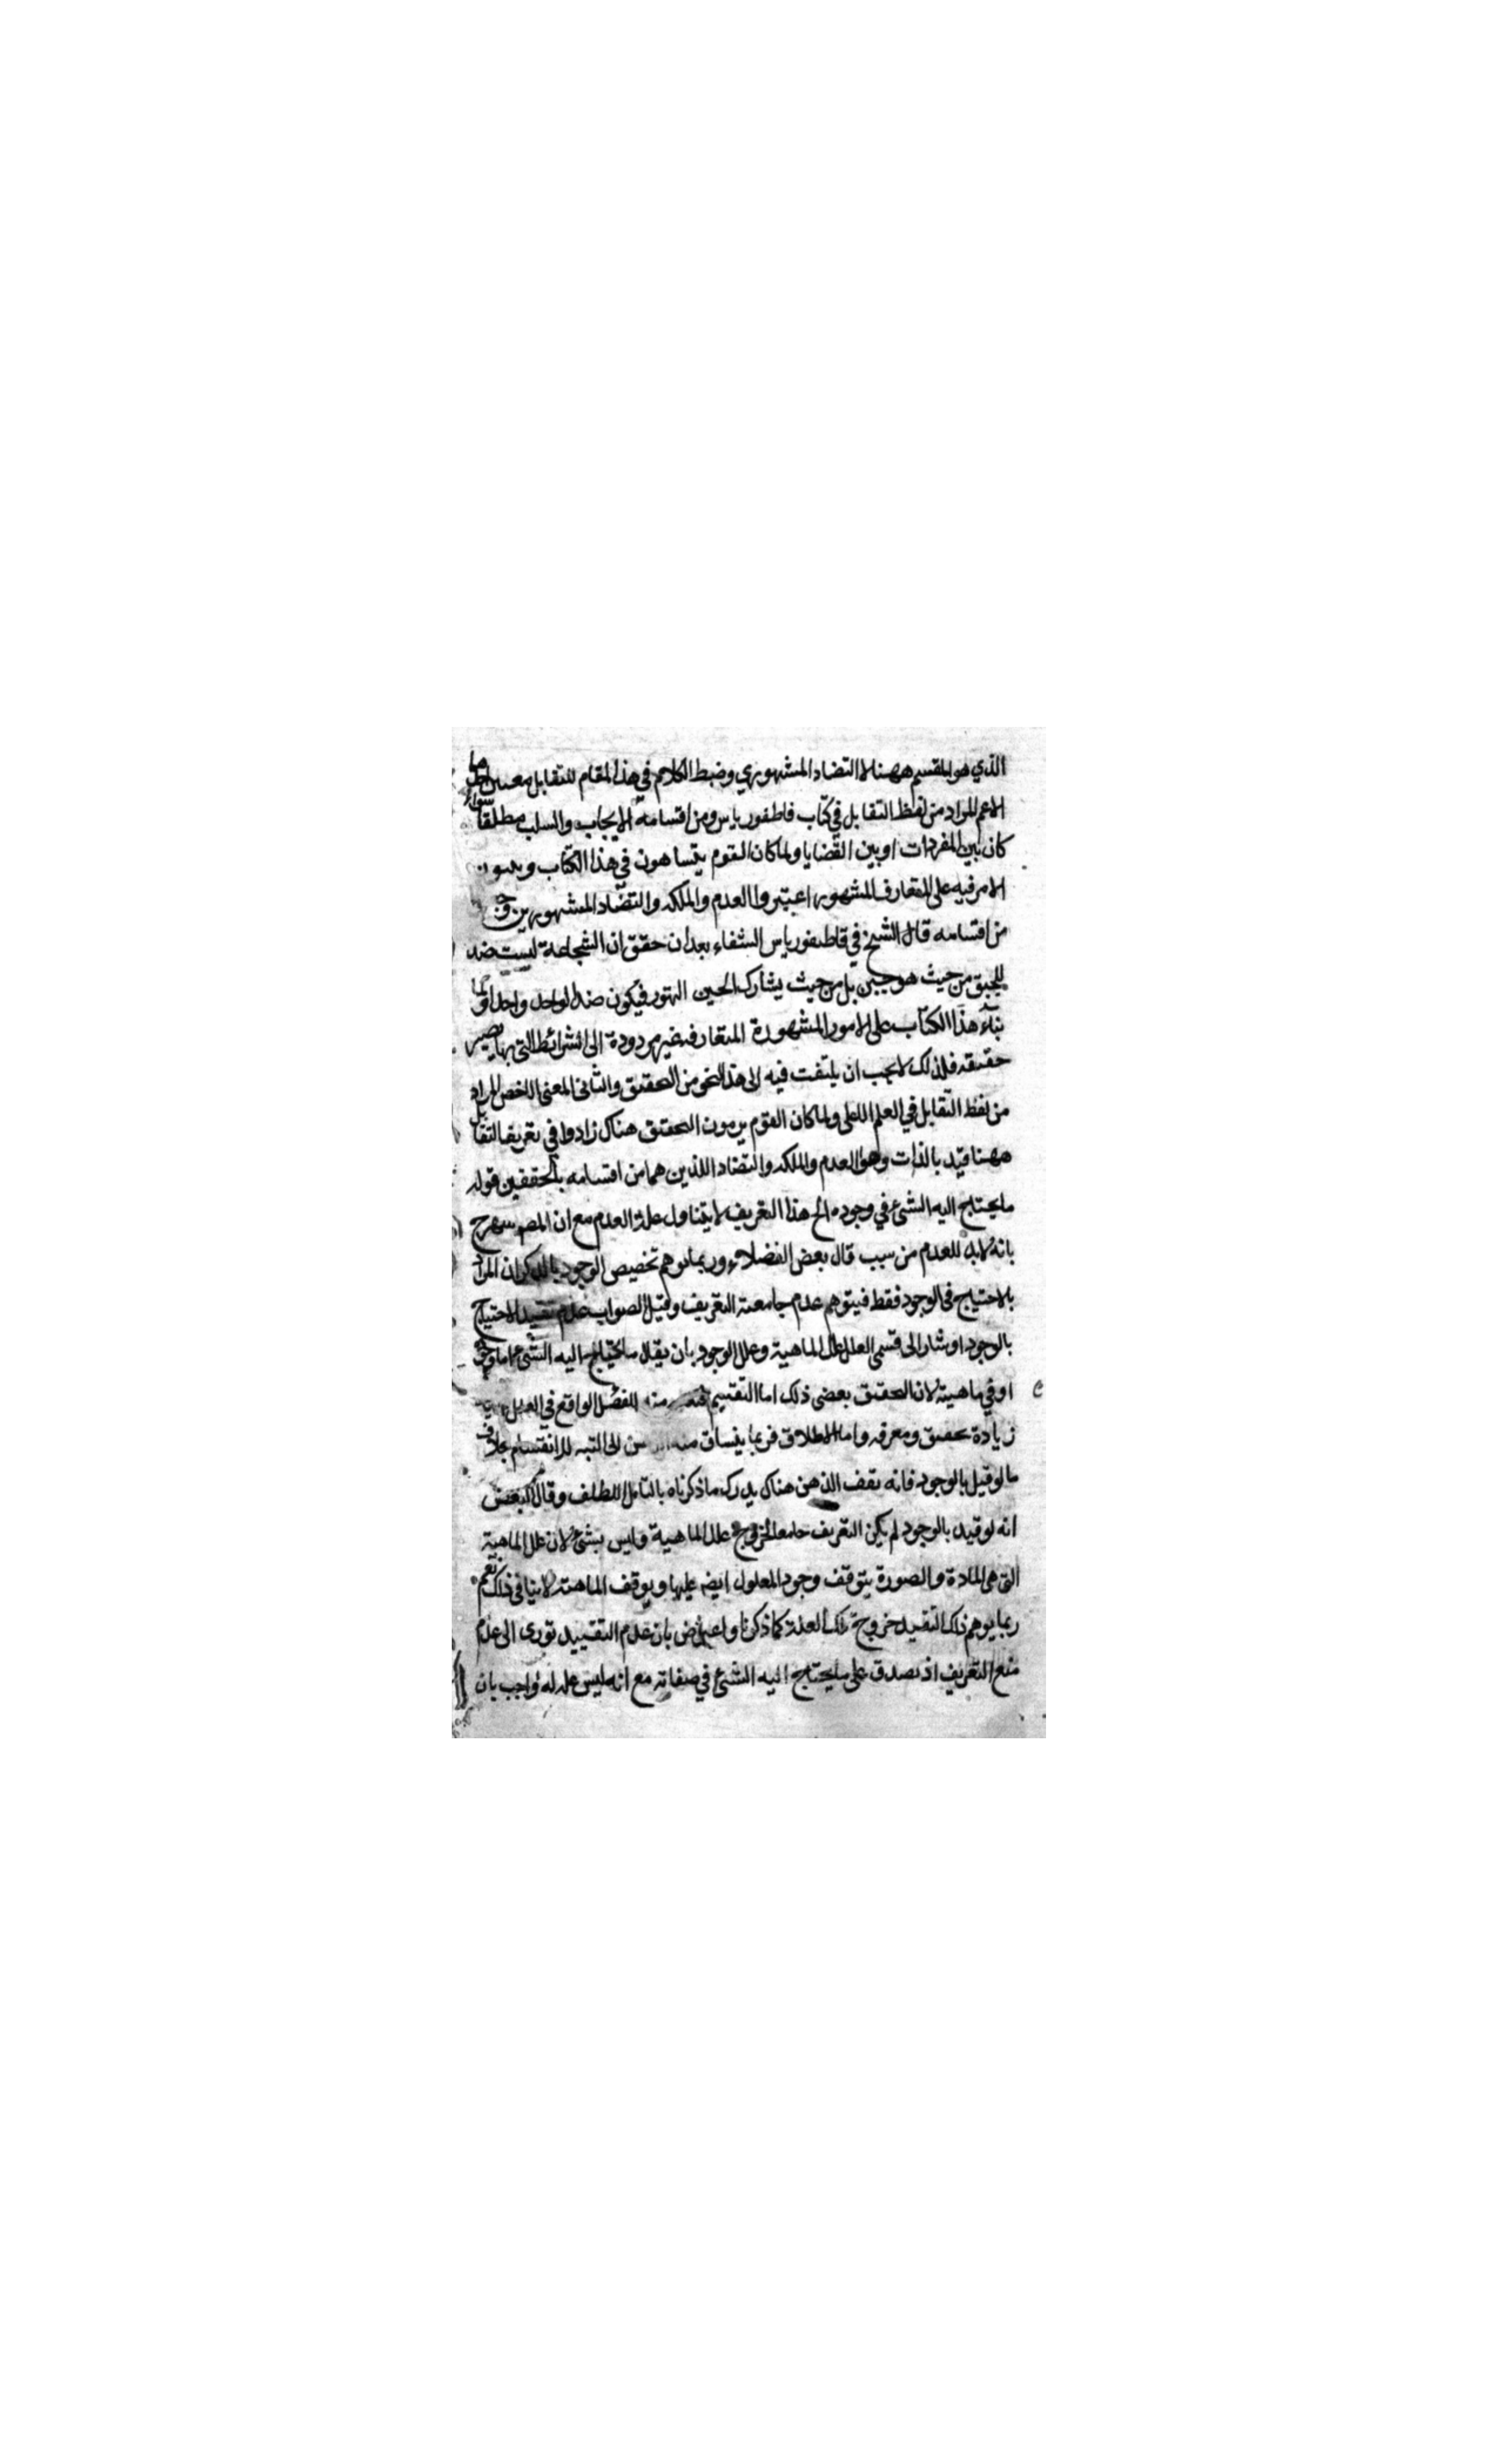 الذي هو المقسم ههنا لا التضاد المشهوري وضبط الكلام في هذا المقام للتقابل معنيين احدهما
الاعم المراد من لفظ التقابل في كتاب قاطيغورياس ومن اقسامه الايجاب والسلب مطلقا سواء
كان بين المفردات او بين القضايا ولما كان القوم يتساهون في هذا الكتاب
الامر فيه على المتعارف المشهور اعتبروا العدم والملكه والتضاد المشهورين
من اقسامه قال الشيخ في قاطيغورياس الشفاء بعد ان حقق ان الشجاعة ليست ضد
للجبن من حيث هو جبن بل من حيث يشارك الجبن التهور فيكون ضد الواحد واحدا
بناء هذا الكتاب على الامور المشهورة المتعارفه غير مردودة الى الشرائط التي بها يصير
حقيقه فلذلك لا يجب ان يلتفت فيه الى هذا النحو من التحقيق والثانى المعنى الاخص المراد
من لفظ التقابل في العلم الاعلى ولما كان القوم يرمون التحقيق هناك زادوا في تعريف التقابل
ههنا قيد بالذات وهو العدم والملكه والتضاد اللذين هما من اقسامه بالحقيقين قوله
ما يحتاج اليه الشئ في وجوده الخ هذا التعريف لا يتناول علة العدم مع ان المصـ سيصرح
بانه لا بد للعدم من سبب قال بعض الفضلاء وربما يوهم تخصيص الوجود بالذكر ان المراد
بالاحتياج فى الوجود فقط فيتوهم عدم جامعية التعريف وقيل الصواب عدم تقييد الاحتياج
بالوجود او يشار الى قسمى العلل علل الماهية وعلل الوجود بان يقال ما يحتاج اليه الشئ اما في وجوده
او في ماهيته لان التحقيق بعضى ذلك اما التقسيم الفصل الواقع في
زيادة تحقيق ومعرفه واما الاطلاق فربما ينساق الى التنبه للانقسام بخلاف
ما لو قيل بالوجود فانه يقف الذهن هناك يدرك ما ذكرناه بالتامل اللطيف وقال البعض
انه لو قيد بالوجود لم يكن التعريف جامعا لخروج علل الماهية وليس بشئ لان علل الماهية
التى هى المادة والصورة يتوقف وجود المعلول ايضه عليها وتوقف الماهية لا ينافى ذلك نعم
ربما يوهم ذلك التقييد خروج تلك العلة كما ذكرنا واعترض بان عدم التقييد تودى الى عدم
منع التعريف اذ يصدق على ما يحتاج اليه الشئ في صفاته مع انه ليس علة له واجب بان